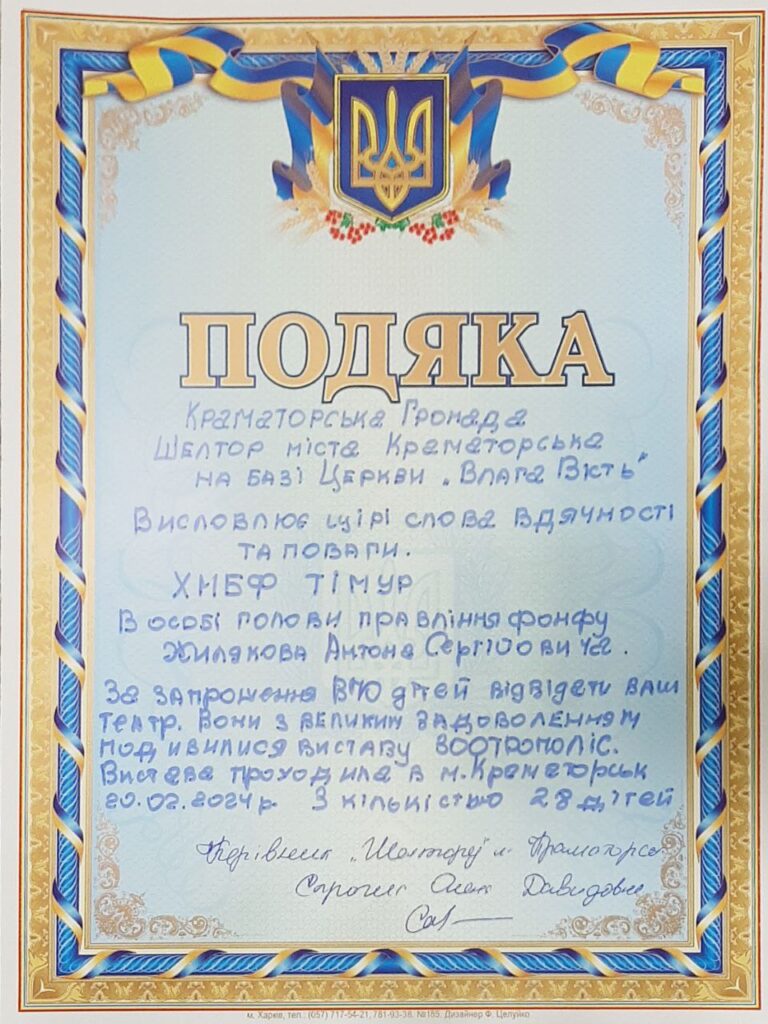 ПОДЯКА
Краматорська Громада
Шелтор міста Краматорська
на базі Церкви „Блага Вість"
Висловлює щірі слова вдячності
та поваги.
ХНБФ ТІМУР
В особі голови правління фонфу
Жилякова Антона Сергійовича.
За запрошення ВПО дітей відвідати ваш
театр. Вони з великим задоволенням
подивилися виставу ЗООТРОПОЛІС.
Вистава проходила в м. Краматорськ
20.02.2024 р. З кількістю 28 дітей
Керівник „Шелтору" м. Краматорськ
Давидовна
м. Харків, тел.: (057) 717-54-21, 781-93-38. №185. Дизайнер Ф. Целуйко